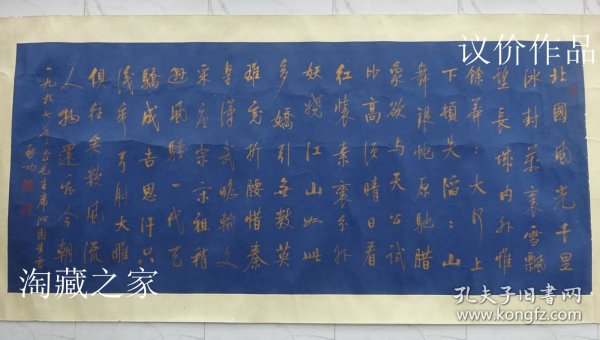 议价作品
北國風光千里
冰封萬裏雪飄
望長城内外惟
餘莽：大河上
下頓失滔：山
舞銀蛇原馳臘
象欲与天公試
比高須晴日看
紅裝素裹分外
妖嬈江山如此
多嬌引無數英
雄竞折腰惜秦
皇漢武略輸文
采唐宗宋祖稍
遜風騷一代天
驕成吉思汗只
識弯弓射大雕
俱往矣數風流
人物還看今朝
一九九七年 毛主席沁園春雪
啓功
淘藏之家
孔夫子旧书网
www.kongfz.com